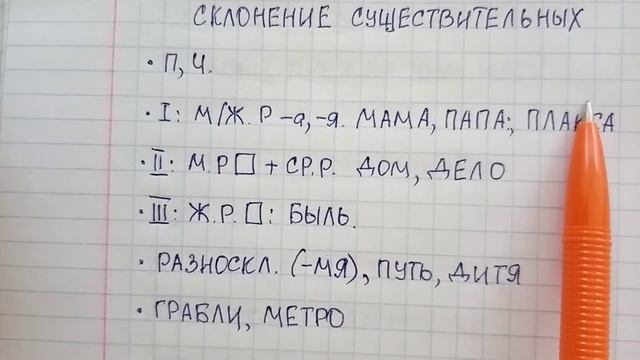 СКЛОНЕНИЕ СУЩЕСТВИТЕЛЬНЫХ
• П, Ч.
• I: М/Ж. Р -а, -я. МАМА, ПАПА;, ПЛАКСА
• II: М.Р□ + СР.Р. ДОМ, ДЕЛО
• III: Ж.Р.□: БЫЛЬ.
• РАЗНОСКЛ. (-МЯ), ПУТЬ, ДИТЯ
• ГРАБЛИ, МЕТРО